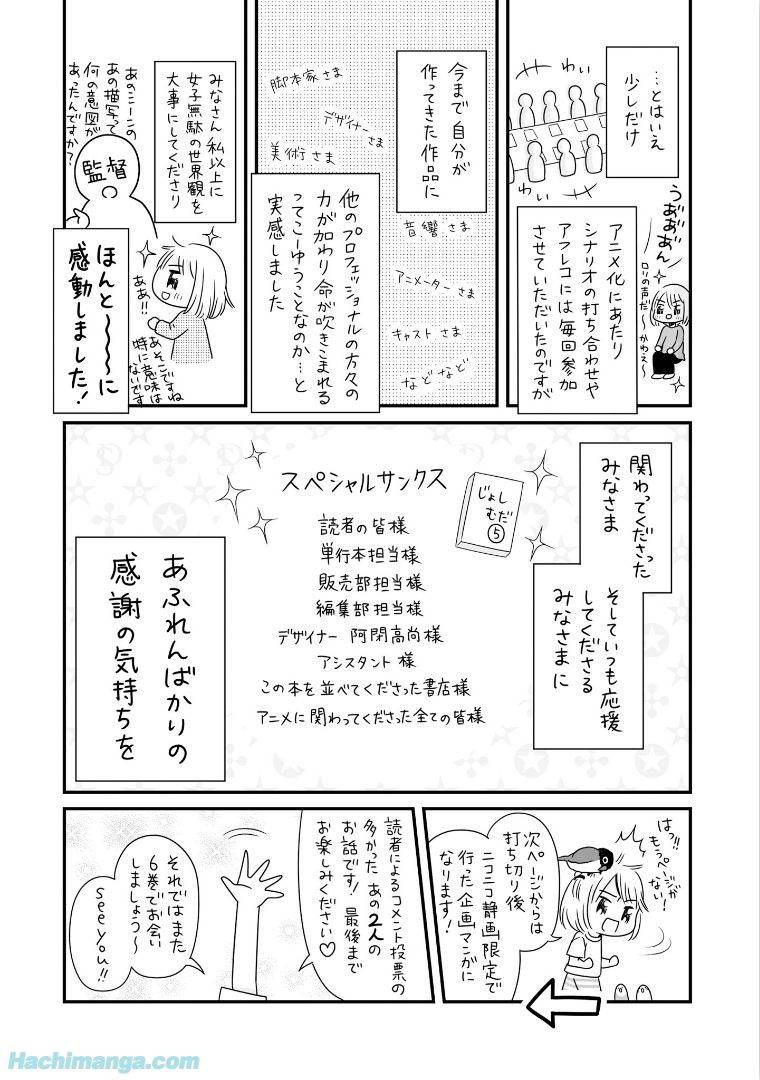 …とはいえ
少しだけ
わい
わい
わい
わい
アニメ化にあたり
シナリオの打ち合わせや
アフレコには毎回参加
させていただいたのですが
うぁぁぁん
ロリの声だ〜かわえ〜
今まで自分が
作ってきた作品に
脚本家さま
デザイナーさま
美術さま
音響さま
アニメーターさま
キャストさま
などなど
他のプロフェッショナルの方々の
力が加わり命が吹きこまれる
ってこーゆうことなのか…と
実感しました
みなさん私以上に
女子無駄の世界観を
大事にしてくださり
あのシーンの
あの描写って
何の意図が
あったんですか?
監督
ああ!!
あそこですね
特に意味は
ないです
ほんと〜〜〜に
感動しました!
関わってくださった
みなさま
そしていつも応援
してくださる
みなさまに
じょし
むだ
⑤
スペシャルサンクス
読者の皆様
単行本担当様
販売部担当様
編集部担当様
デザイナー 阿閉高尚様
アシスタント様
この本を並べてくださった書店様
アニメに関わってくださった全ての皆様
あふれんばかりの
感謝の気持ちを
はっ!!
もうページが
ない!
次ページからは
打ち切り後
ニコニコ静画限定で
行った企画マンガに
なります!
読者によるコメント投票の
多かったあの2人の
お話です!最後まで
お楽しみください♡
それではまた
6巻でお会い
しましょう〜
see you!!
Hachimanga.com